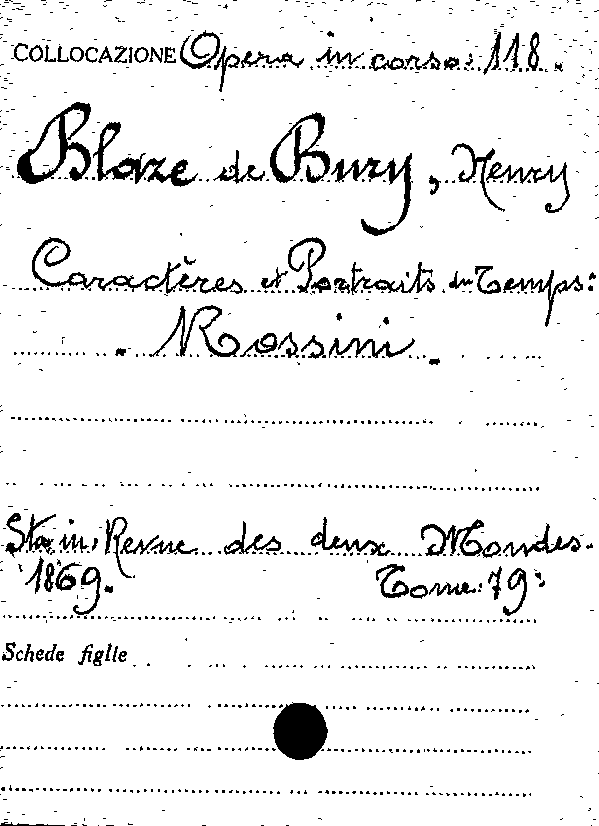 COLLOCAZIONE Opera in corso: 118.
Blaze de Bury, Henry
Caractères et Portraits du Temps:
- Rossini -
Sta in: Revue des deux Mondes.
1869. Tome: 79:
Schede figlie